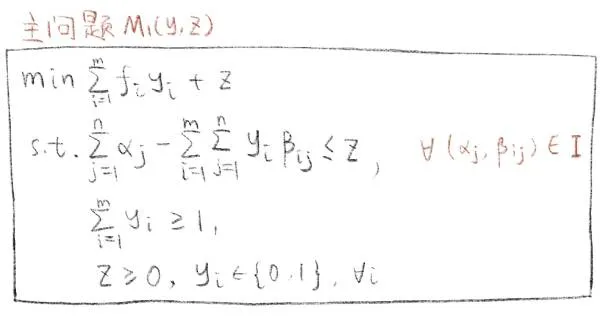 主问题 M₁(y,z)
min ∑ᵢ₌₁ᵐ fᵢyᵢ + z
s.t. ∑ⱼ₌₁ⁿ αⱼ - ∑ᵢ₌₁ᵐ ∑ⱼ₌₁ⁿ yᵢ βᵢⱼ ≤ z, ∀ (αⱼ, βᵢⱼ) ∈ I
∑ᵢ₌₁ᵐ yᵢ ≥ 1,
z ≥ 0, yᵢ ∈ {0,1}, ∀i